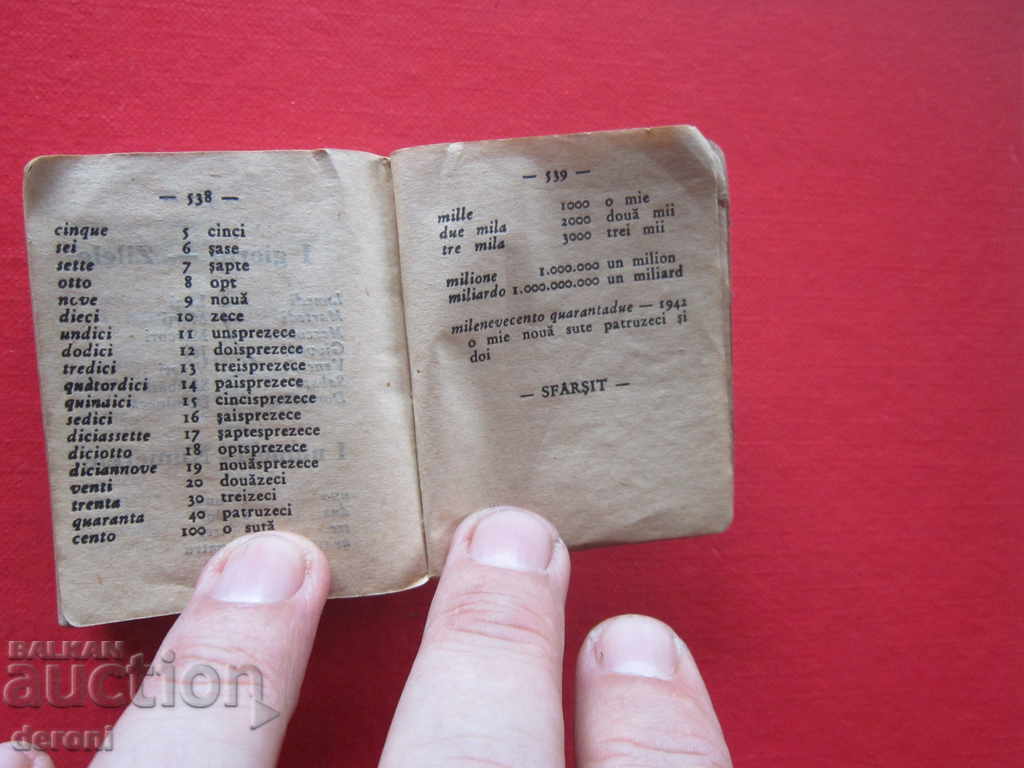 — 538 —
cinque 5 cinci
sei 6 șase
sette 7 șapte
otto 8 opt
nove 9 nouă
dieci 10 zece
undici 11 unsprezece
dodici 12 doisprezece
tredici 13 treisprezece
quàtordici 14 paisprezece
quindici 15 cincisprezece
sedici 16 șaisprezece
diciassette 17 șaptesprezece
diciotto 18 optsprezece
diciannove 19 nouăsprezece
venti 20 douăzeci
trenta 30 treizeci
quaranta 40 patruzeci
cento 100 o sută
— 539 —
mille 1000 o mie
due mila 2000 două mii
tre mila 3000 trei mii
milione 1.000.000 un milion
miliardo 1.000.000.000 un miliard
milenevecento quarantadue — 1942
o mie nouă sute patruzeci și
doi
— SFÂRȘIT —
BALKAN
auction
deroni